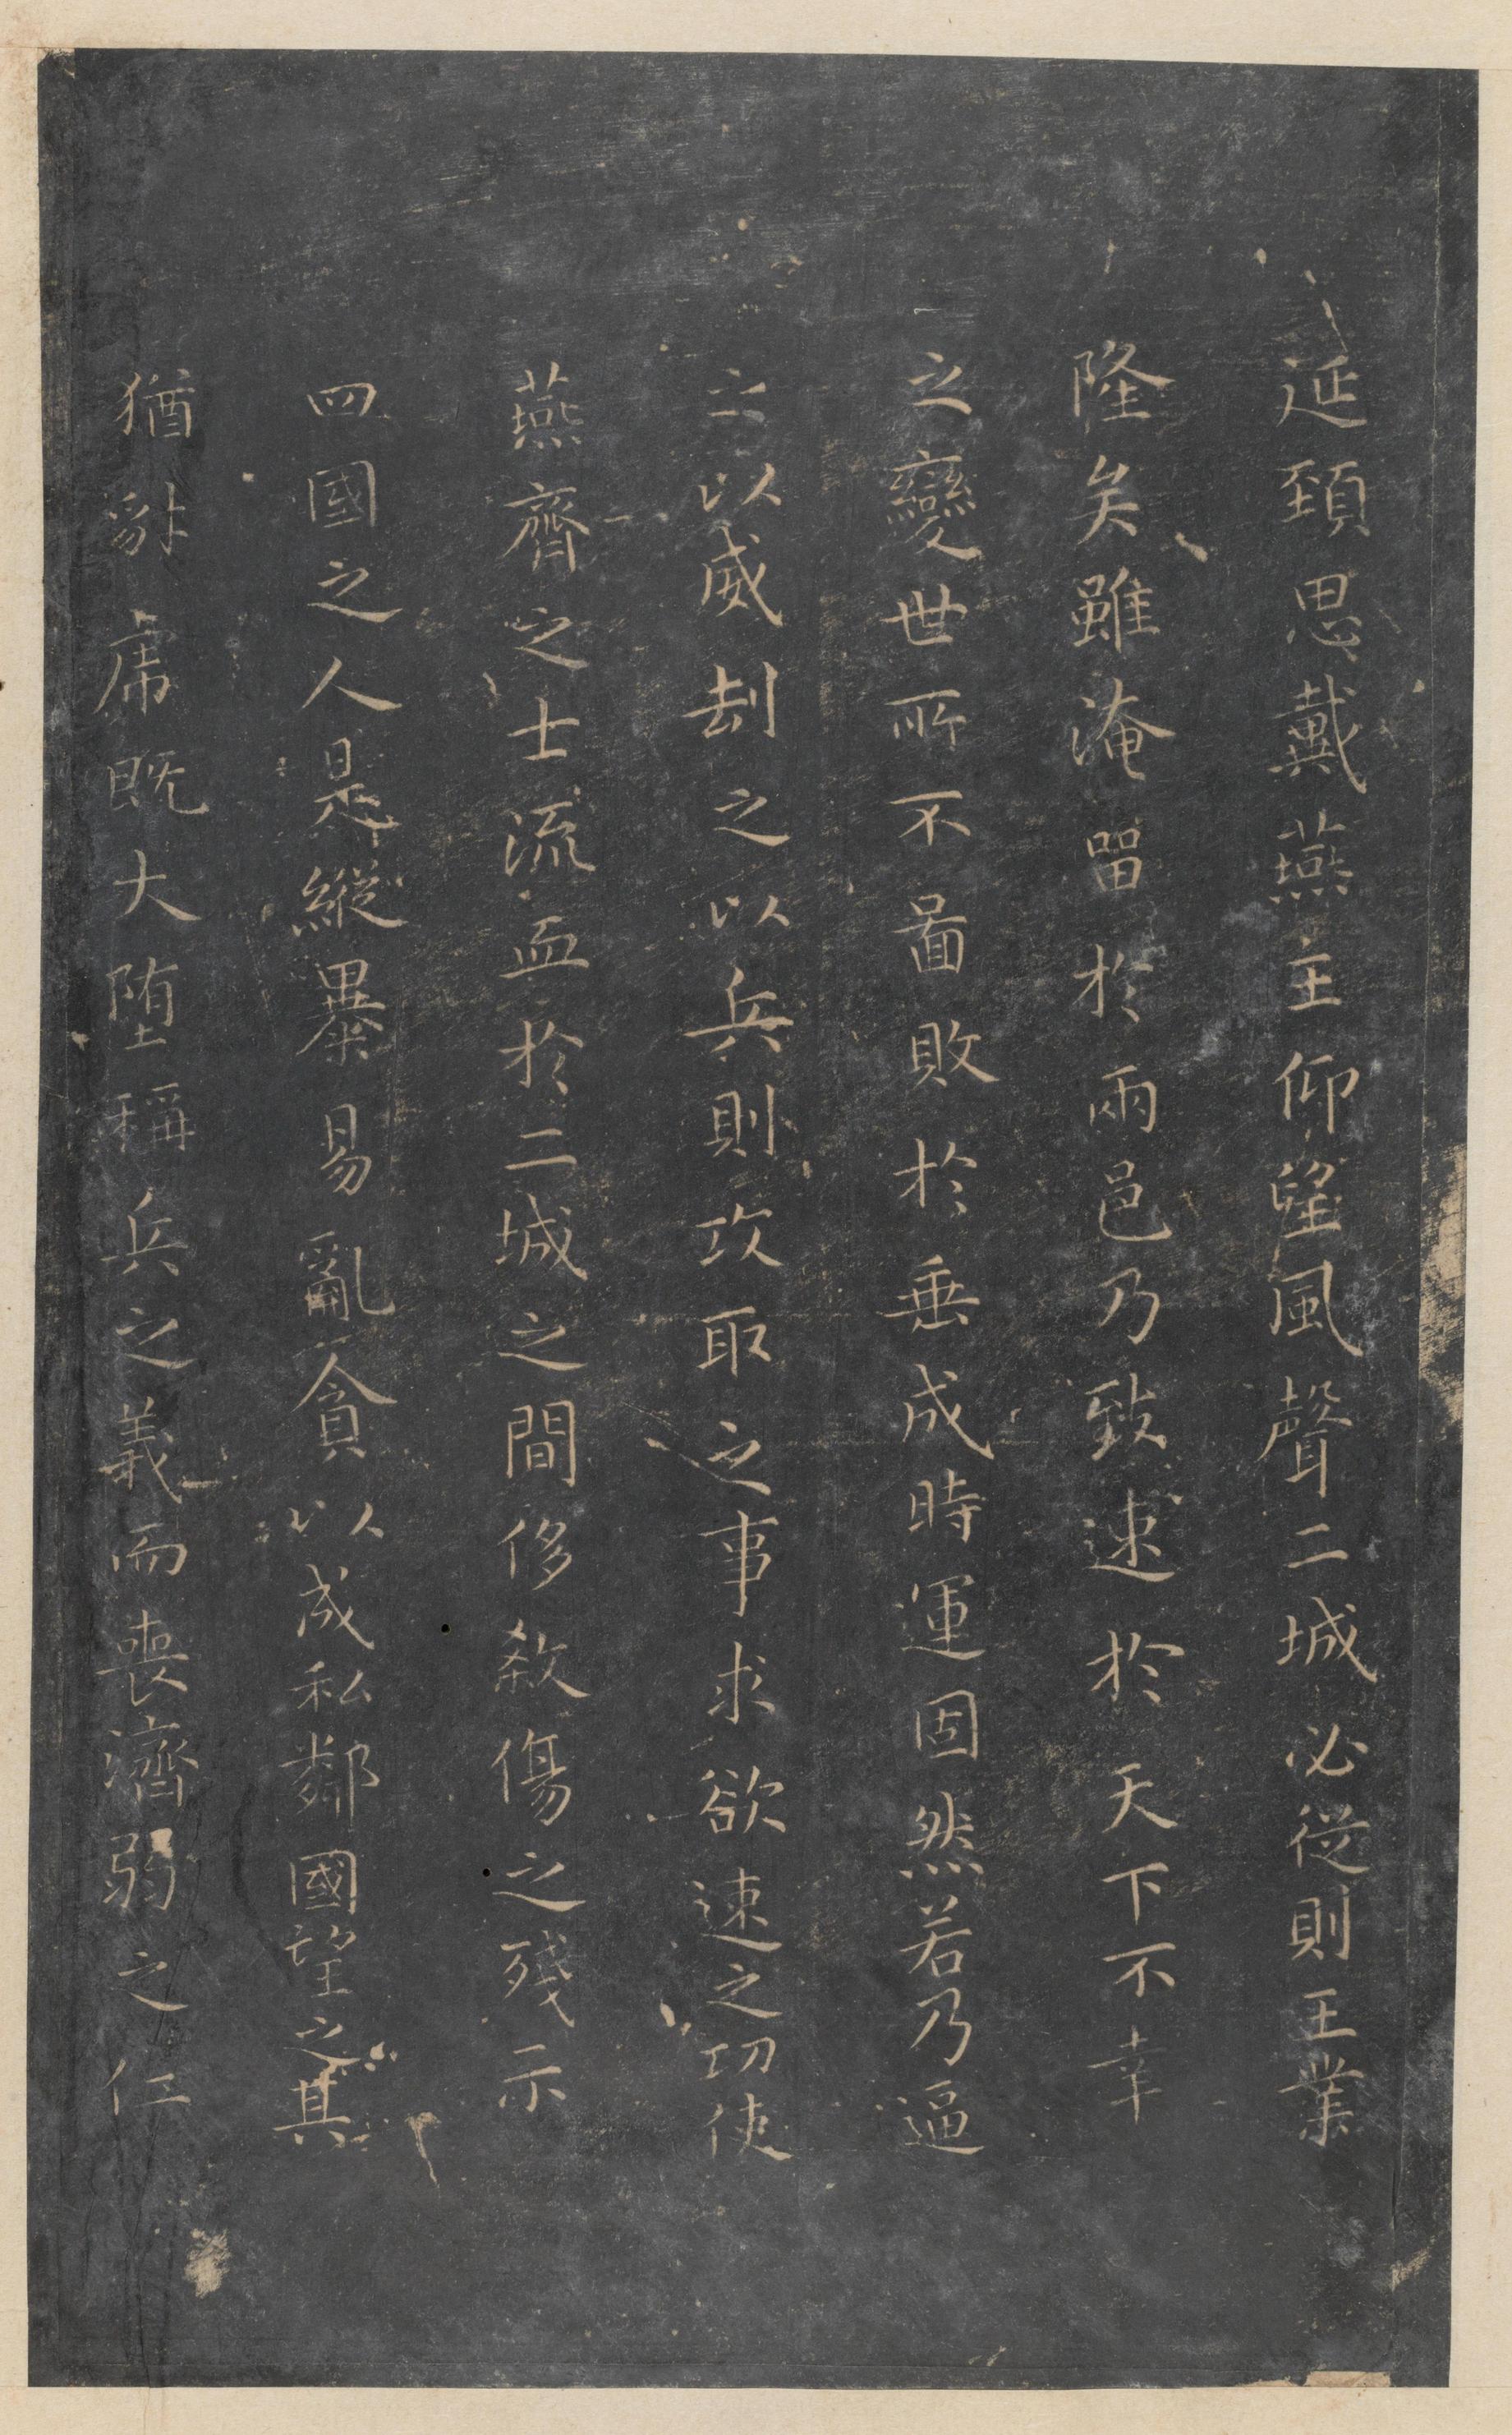 延頸思戴燕主仰望風聲二城必從則王業
隆矣雖淹留於兩邑乃致速於天下不幸
之變世所不圖敗於垂成時運固然若乃逼
之以威刦之以兵則攻取之事求欲速之功使
燕齊之士流血於二城之間侈殺傷之殘示
四國之人是縱暴易亂貪以成私鄰國望之其
猶豺虎既大堕稱兵之義而喪濟弱之仁